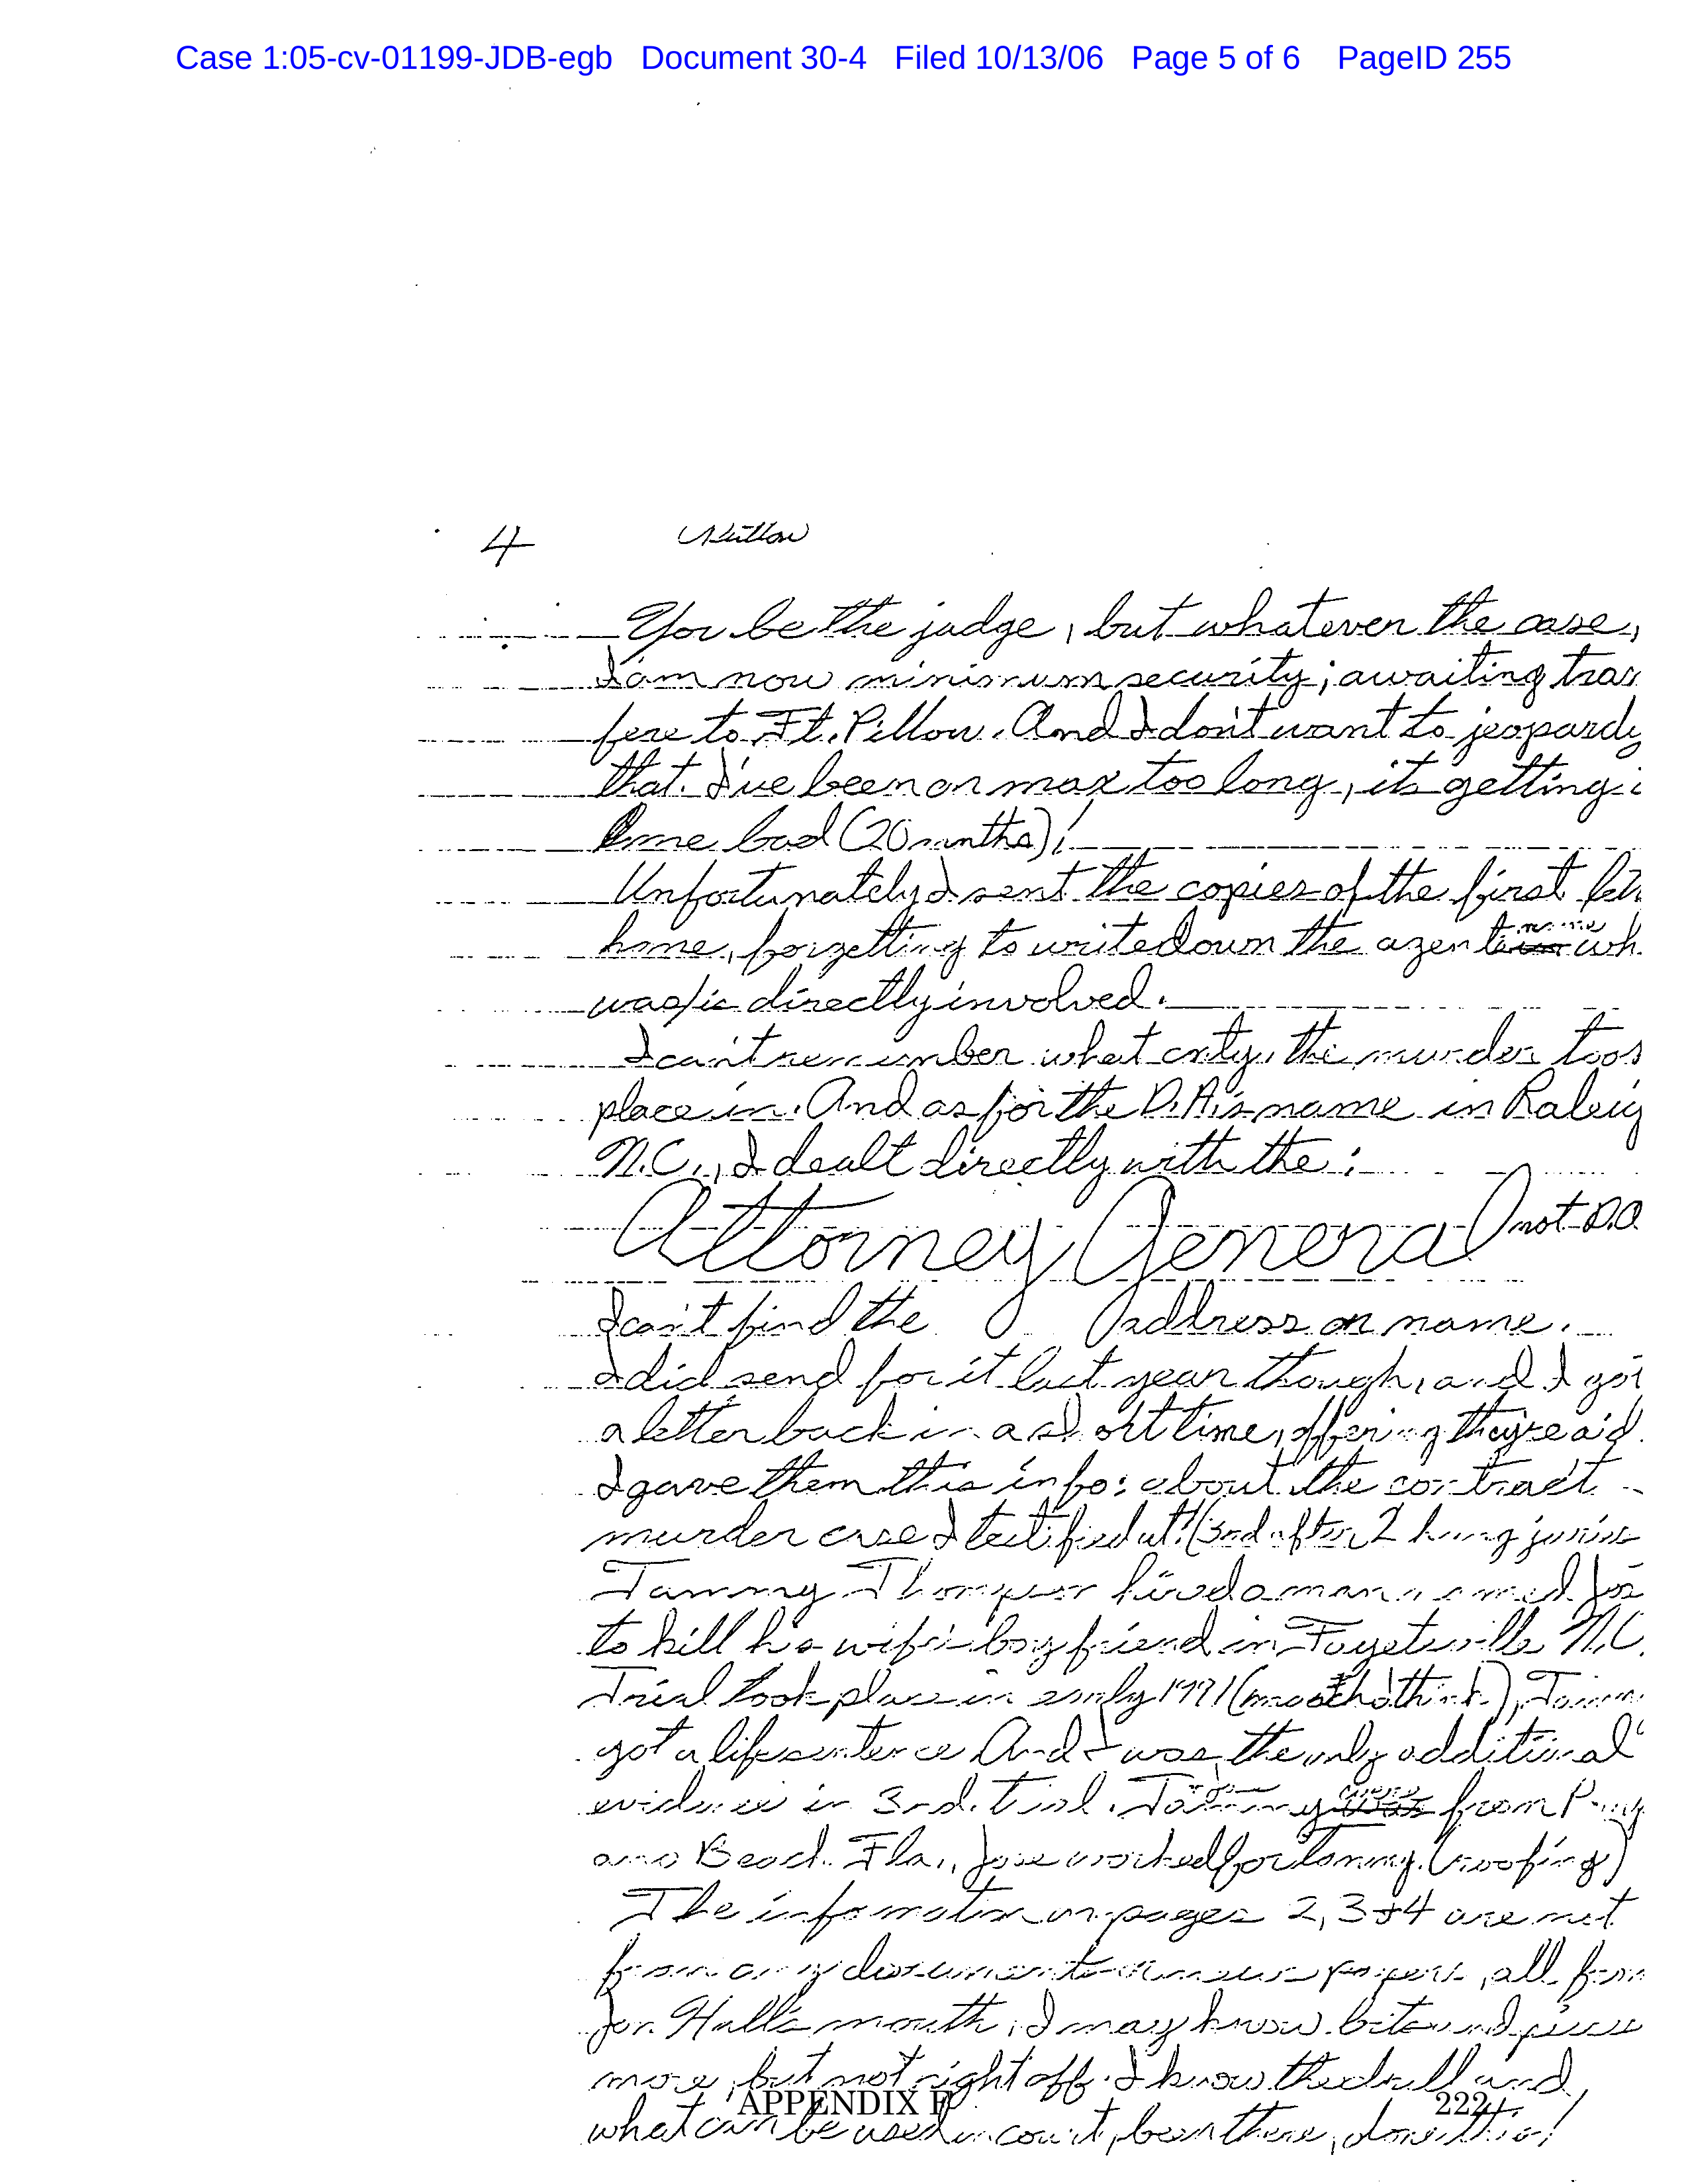 Case 1:05-cv-01199-JDB-egb Document 30-4 Filed 10/13/06 Page 5 of 6 PageID 255
4
You be the judge, but whatever the case,
I am now minimum security; awaiting tran
fere to Ft. Pillow. And I don't want to jeopardy
that. I've been on max too long, its getting
me bad (20 months)!
Unfortunately I sent the copies of the first let
home, forgetting to write down the agent name wh
was/is directly involved.
I can't remember what city the murder took
place in. And as for the D.A.'s name in Raleig
N.C., I dealt directly with the:
Attorney General not D.A
I can't find the address or name.
I did send for it last year though, and I got
a letter back in a short time, offering they're aid.
I gave them this info: about the contract
murder case I testified at! (3rd after 2 hung juries
Tammy Thompson hired a man named Joe
to kill his wife's boyfriend in Fayetville N.C.
Trial took place in early 1991 (march I think),
got a life sentence And I was the only additional
evidence in 3rd. trial. were from
Beach Fla., Jose worked for (roofing)
The information on pages 2, 3 & 4 are not
from any documents or newspapers, all from
Jon Hall's mouth, I may know bits and pieces
more, but not right off. I know the drill and
what can be used in court, been there, done this!
APPENDIX F 222